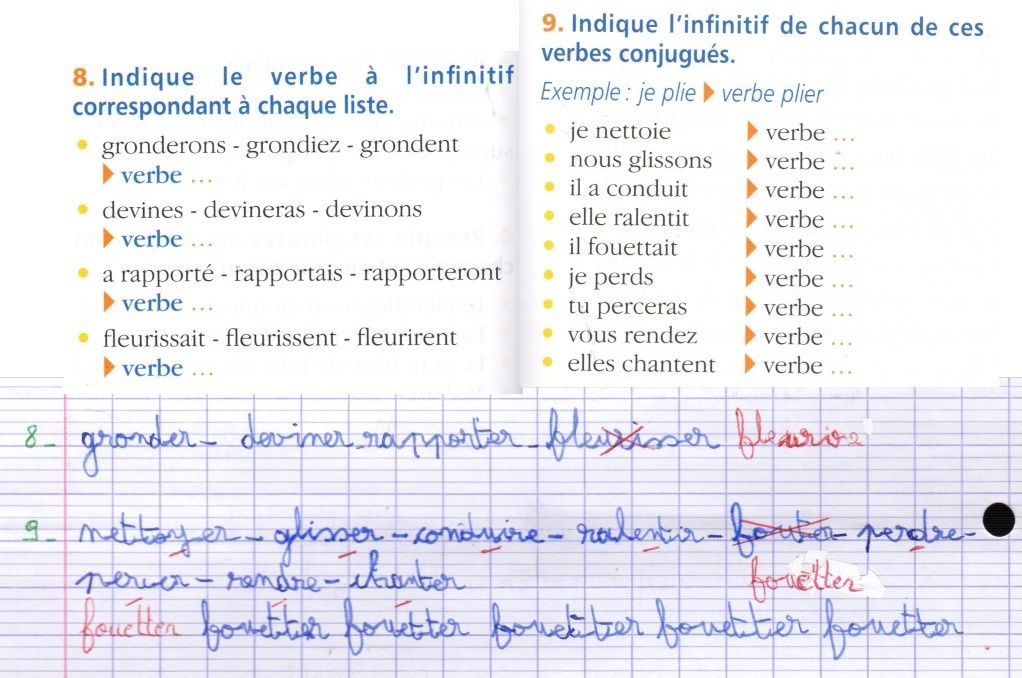 8. Indique le verbe à l'infinitif
correspondant à chaque liste.
• gronderons - grondiez - grondent
verbe ...
• devines - devineras - devinons
verbe ...
• a rapporté - rapportais - rapporteront
verbe ...
• fleurissait - fleurissent - fleurirent
verbe ...
9. Indique l'infinitif de chacun de ces
verbes conjugués.
Exemple : je plie verbe plier
• je nettoie verbe ...
• nous glissons verbe ...
• il a conduit verbe ...
• elle ralentit verbe ...
• il fouettait verbe ...
• je perds verbe ...
• tu perceras verbe ...
• vous rendez verbe ...
• elles chantent verbe ...
8_ gronder - deviner - rapporter - fleurisser fleurir
9_ nettoyer - glisser - conduire - ralentir - fouter - perdre -
percer - rendre - chanter fouetter
fouetter fouetter fouetter fouetter fouetter fouetter